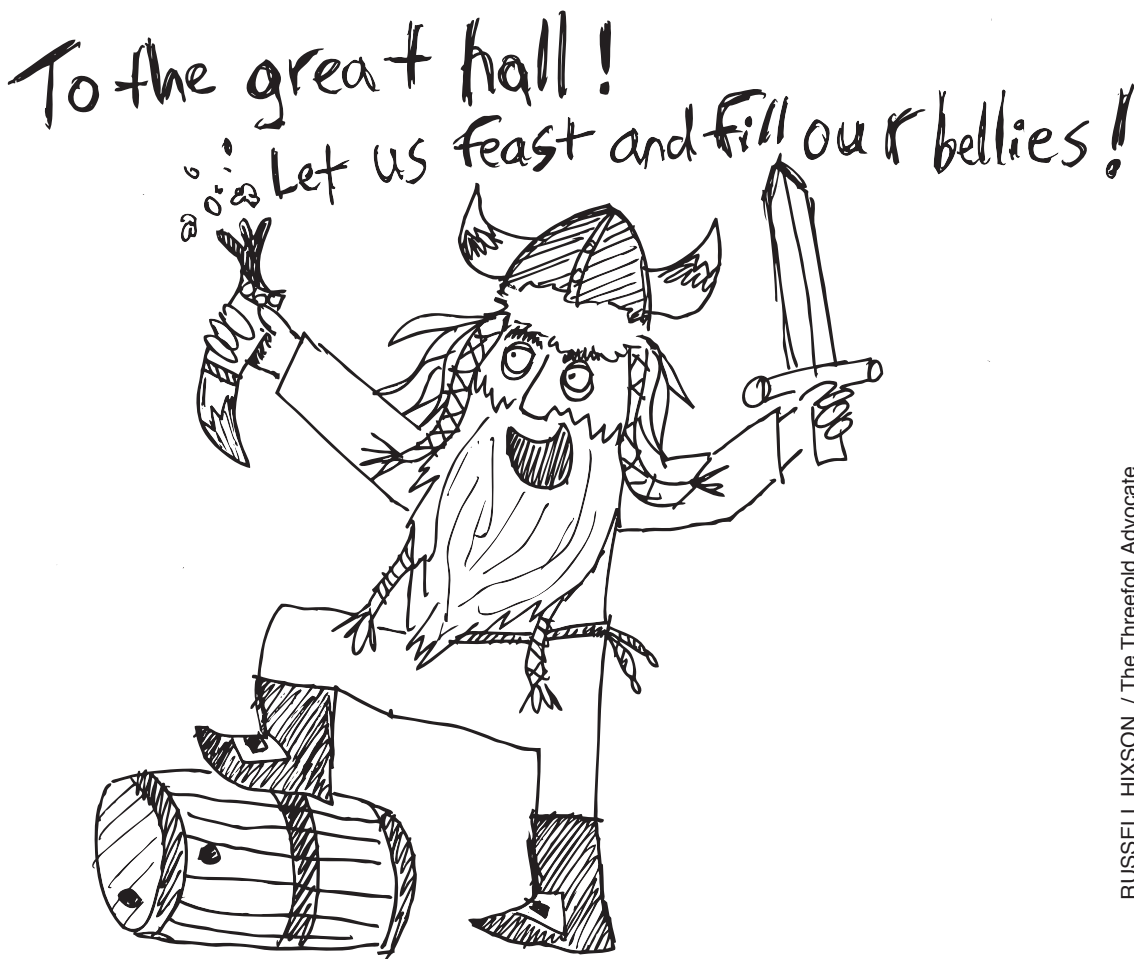 To the great hall!
Let us feast and fill our bellies!
RUSSELL HIXSON / The Threefold Advocate